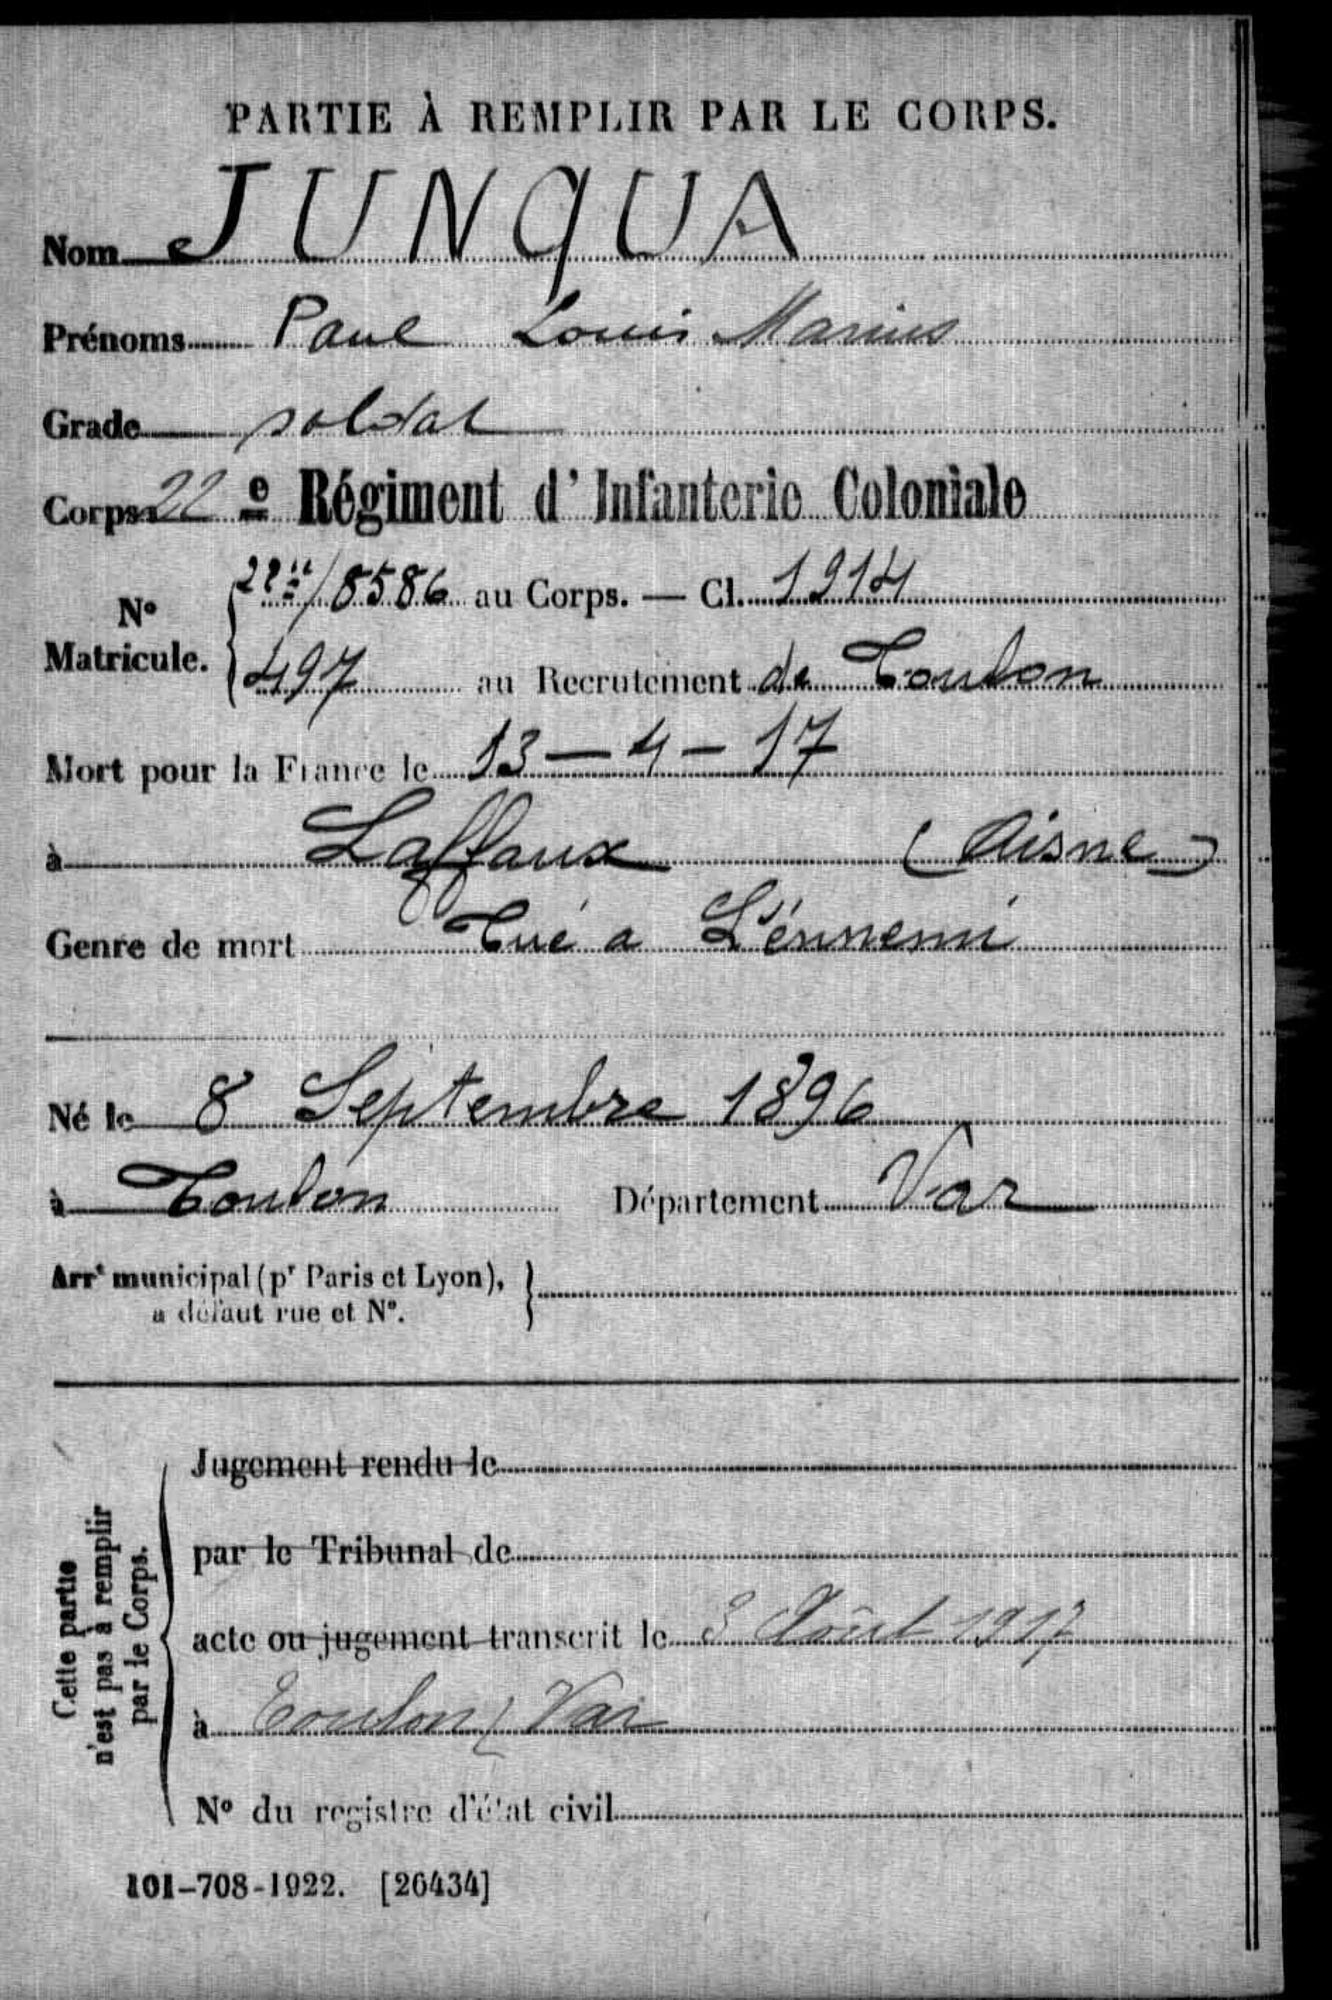 PARTIE À REMPLIR PAR LE CORPS.
Nom JUNQUA
Prénoms Paul Louis Marius
Grade soldat
Corps 22e Régiment d'Infanterie Coloniale
N° Matricule. { 22e/8586 au Corps. — Cl. 1914
497 au Recrutement de Toulon
Mort pour la France le 13 — 4 — 17
à Laffaux (Aisne)
Genre de mort Tué a L'énnemi
Né le 8 Septembre 1896
à Toulon Département Var
Arrt municipal (pr Paris et Lyon), }
a défaut rue et N°.
Cette partie
n'est pas à remplir
par le Corps.
Jugement rendu le
par le Tribunal de
acte ou jugement transcrit le 3 Août 1917
à Toulon (Var
N° du registre d'état civil
101-708-1922. [26434]